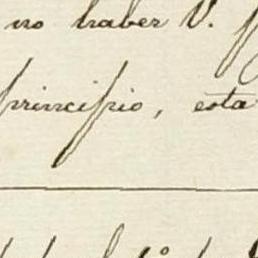 no haber V.
principio, esta